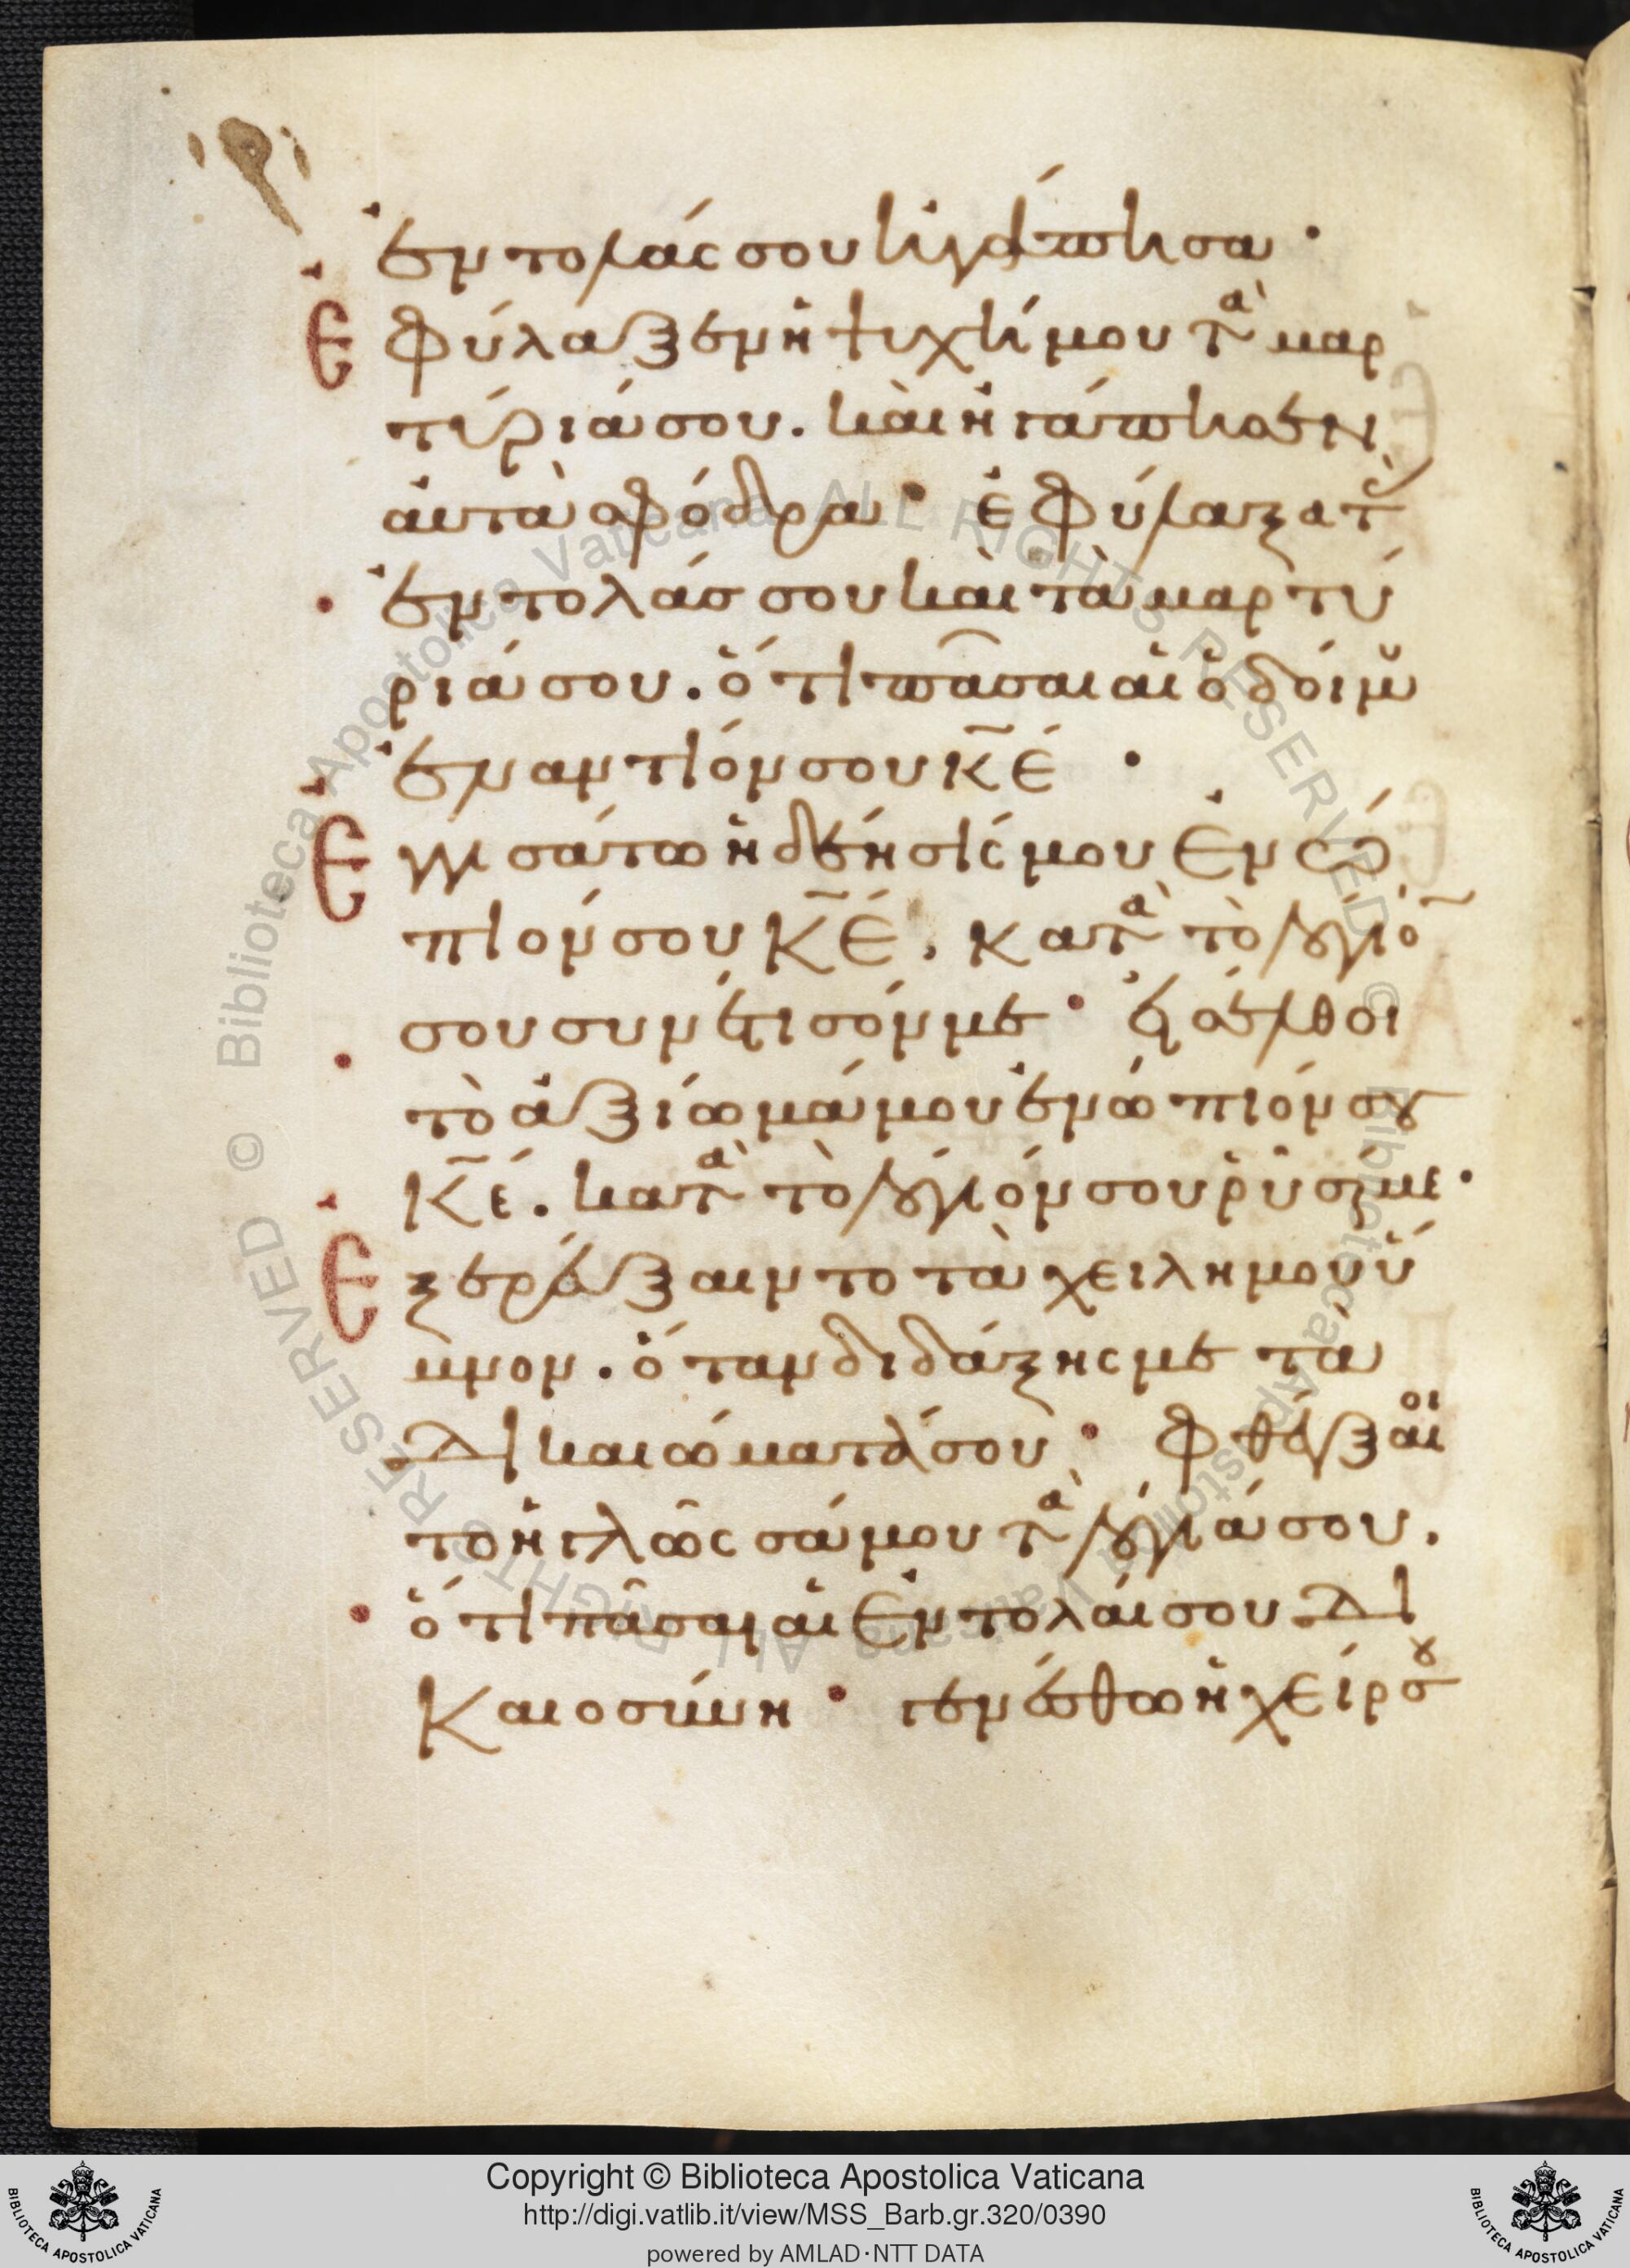 ἐντολάς σου ἠγάπησα·
Ἐφύλαξεν ἡ ψυχή μου τὰ μαρ
τύριά σου. καὶ ἠγάπησεν
αὐτὰ σφόδρα· ἐφύλαξα τὰς
ἐντολάς σου καὶ τὰ μαρτύ
ριά σου. ὅτι πᾶσαι αἱ ὁδοί μου
ἐναντίόν σου κ̅ε̅·
Ἐγγισάτω ἡ δέησίς μου ἐνώ
πιόν σου Κ̅Ε̅. κατὰ τὸ λόγιό̅
σου συνέτισόν με· εἰσέλθοι
τὸ ἀξίωμά μου ἐνώπιόν σου
Κ̅ε̅. κατὰ τὸ λόγιόν σου ῥῦσαί με·
Ἐξερεύξαιντο τὰ χείλη μου ὕ
μνον. ὅταν διδάξῃς με τὰ
δικαιώματά σου· φθέγξαιοι
το ἡ γλῶσσά μου τὰ λόγιά σου.
ὅτι πᾶσαι αἱ ἐντολαί σου δι
καιοσύνη· γενέσθω ἡ χείρ σου
Copyright © Biblioteca Apostolica Vaticana
http://digi.vatlib.it/view/MSS_Barb.gr.320/0390
powered by AMLAD·NTT DATA
BIBLIOTECA APOSTOLICA VATICANA
BIBLIOTECA APOSTOLICA VATICANA
© Biblioteca Apostolica Vaticana ALL RIGHTS RESERVED © Biblioteca Apostolica Vaticana ALL RIGHTS RESERVED